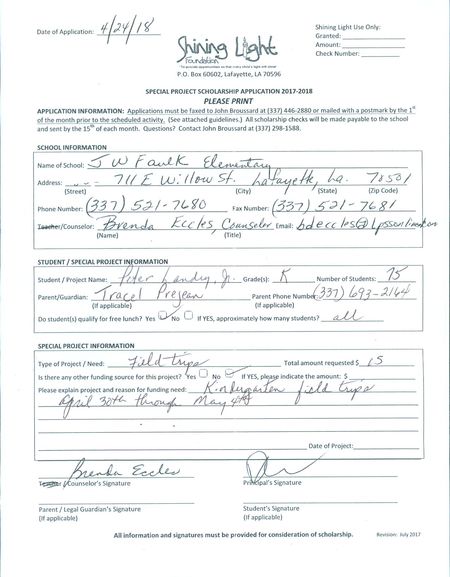 Date of Application: 4/24/18
Shining Light Use Only:
Granted:
Amount:
Check Number:
Shining Light
Foundation
P.O. Box 60602, Lafayette, LA 70596
SPECIAL PROJECT SCHOLARSHIP APPLICATION 2017-2018
PLEASE PRINT
APPLICATION INFORMATION: Applications must be faxed to John Broussard at (337) 446-2880 or mailed with a postmark by the 1st
of the month prior to the scheduled activity. (See attached guidelines.) All scholarship checks will be made payable to the school
and sent by the 15th of each month. Questions? Contact John Broussard at (337) 298-1588.
SCHOOL INFORMATION
Name of School: J W Faulk Elementary
Address: 711 E Willow St. Lafayette, La. 70501
(Street) (City) (State) (Zip Code)
Phone Number: (337) 521-7680 Fax Number: (337) 521-7681
Teacher/Counselor: Brenda Eccles, Counselor Email:
(Name) (Title)
STUDENT / SPECIAL PROJECT INFORMATION
Student / Project Name: Peter Landry, Jr. Grade(s): K Number of Students: 75
Parent/Guardian: Tracel Prejean Parent Phone Number: (337) 693-2164
(if applicable) (If applicable)
Do student(s) qualify for free lunch? Yes No If YES, approximately how many students? all
SPECIAL PROJECT INFORMATION
Type of Project / Need: Field trips Total amount requested $ 15
Is there any other funding source for this project? Yes No If YES, please indicate the amount: $
Please explain project and reason for funding need: Kindergarten field trips
April 30th through May 4th
Date of Project:
Brenda Eccles
Teacher / Counselor's Signature Principal's Signature
Parent / Legal Guardian's Signature Student's Signature
(If applicable) (If applicable)
All information and signatures must be provided for consideration of scholarship. Revision: July 2017